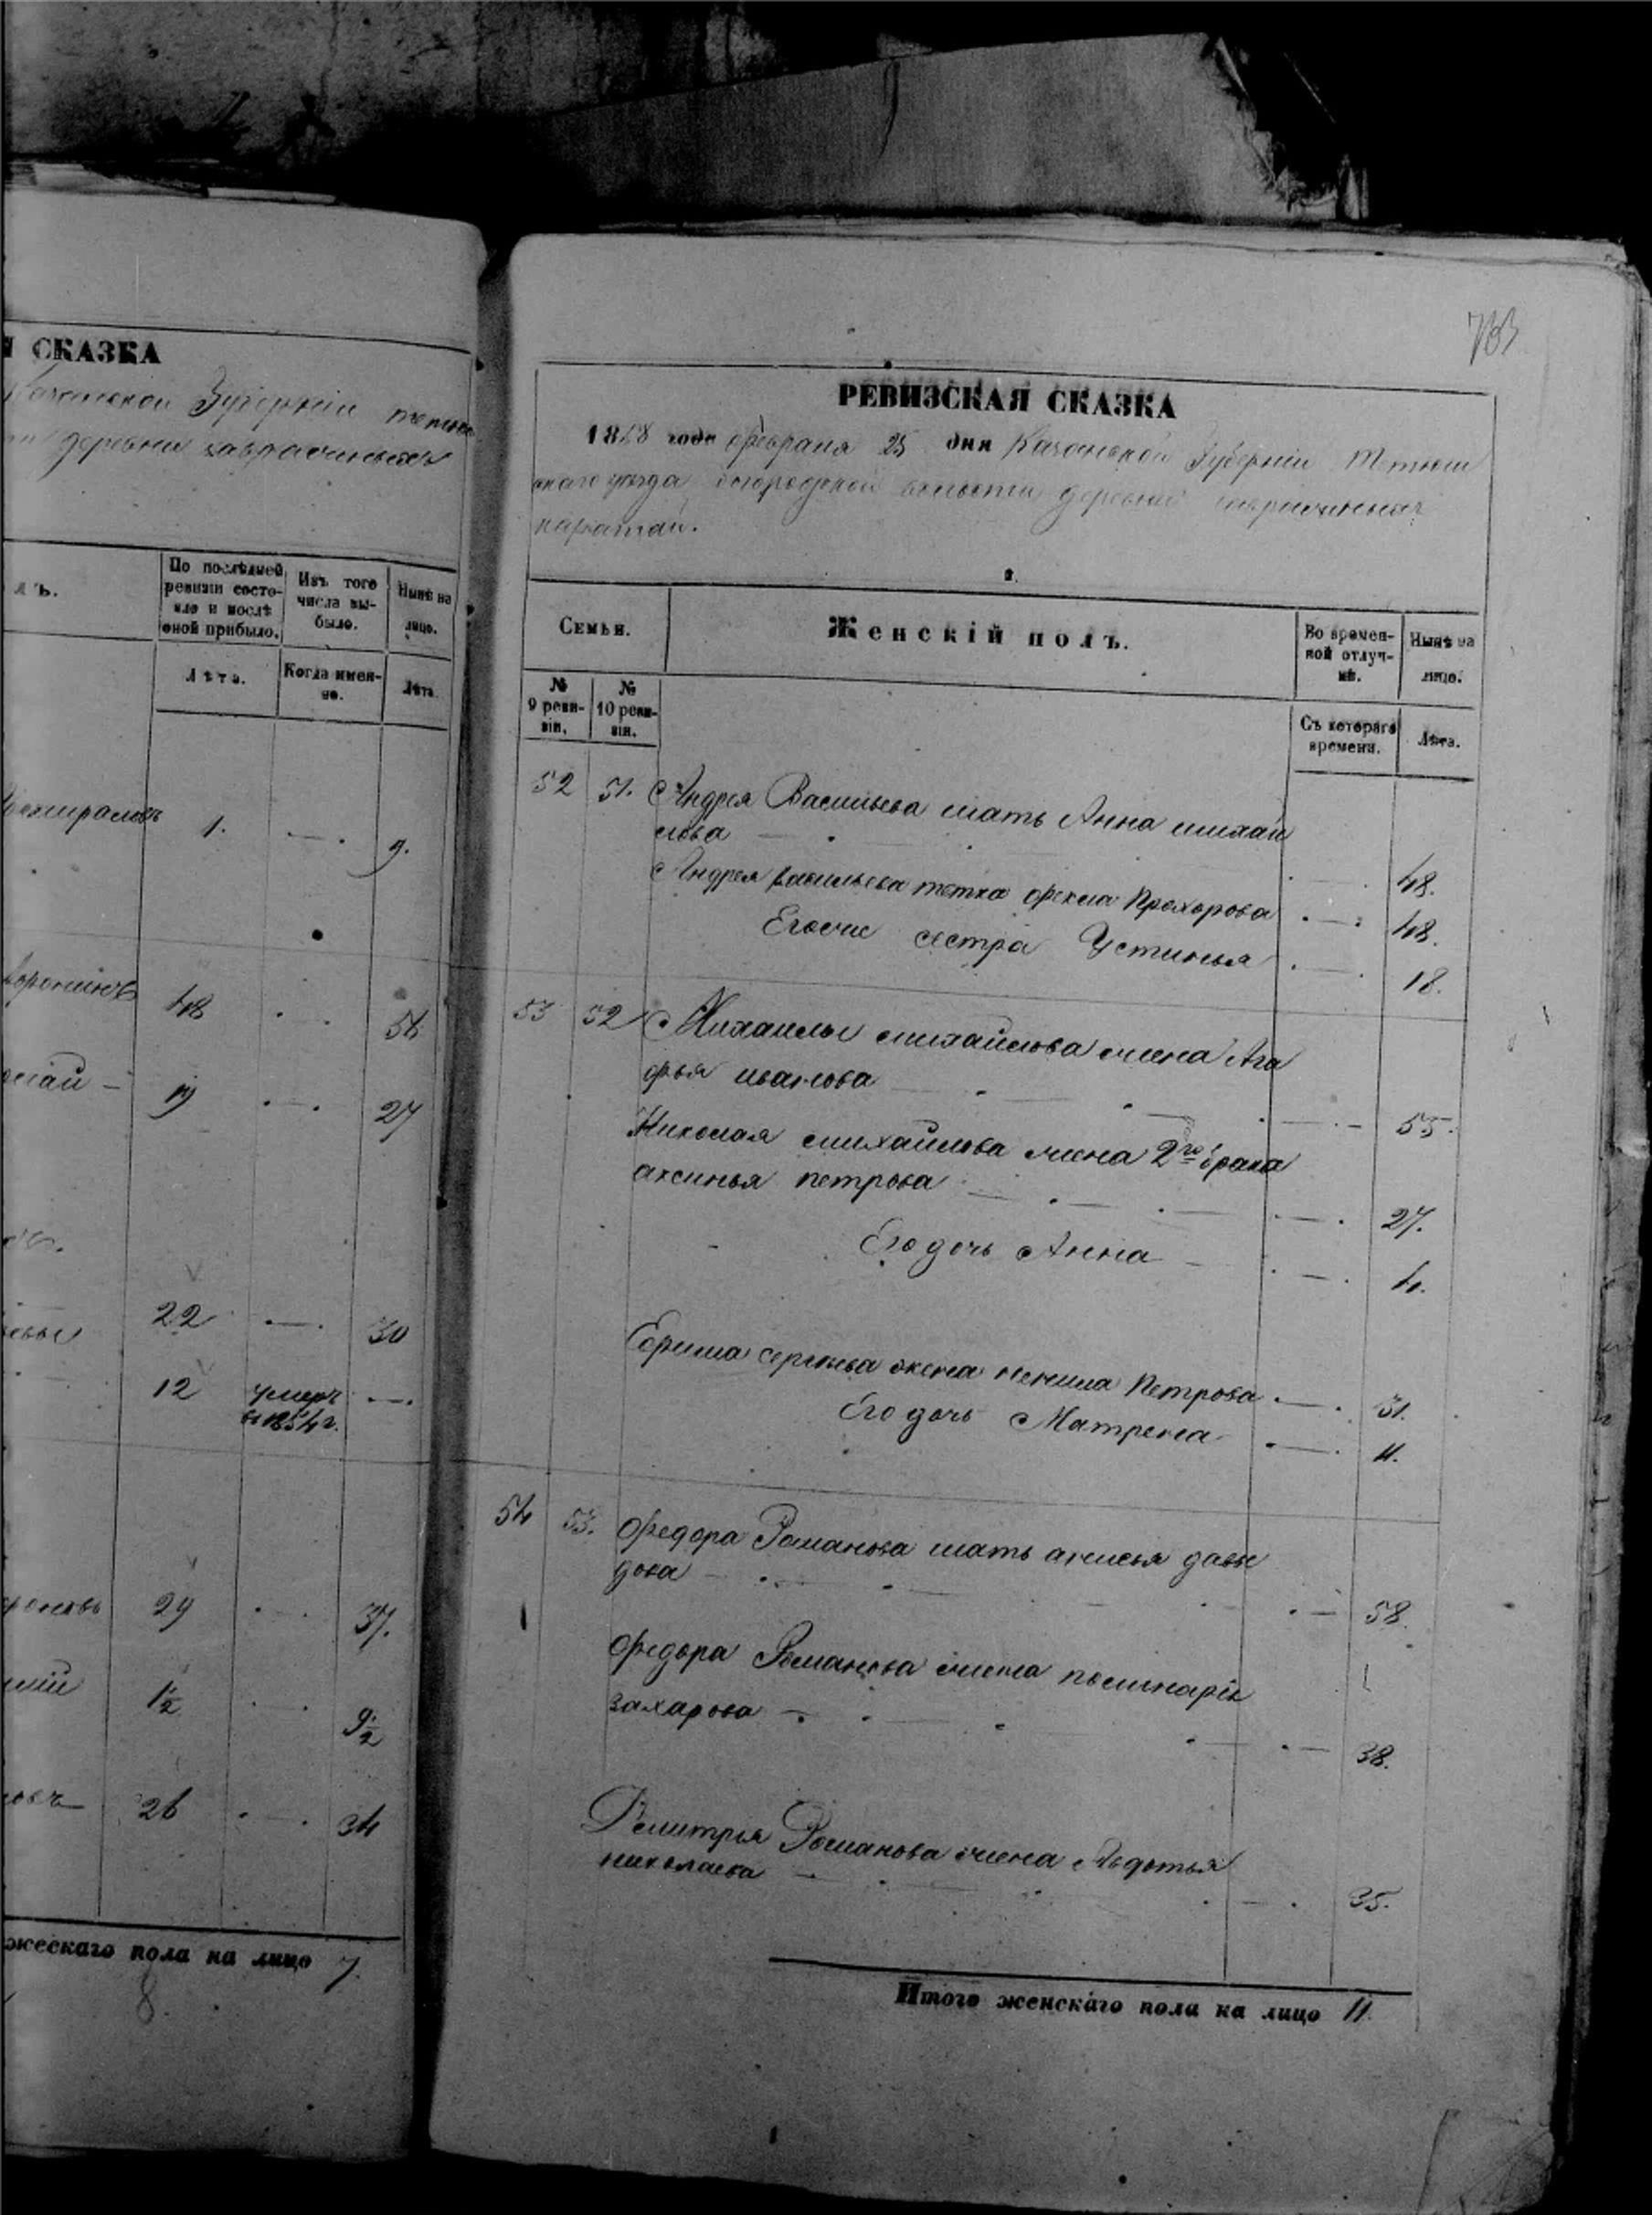 СКАЗКА
Казанской Губерніи
деревни
По послѣдней ревизіи состояло и послѣ оной прибыло.
Изъ того числа выбыло.
Нынѣ на лицо.
Лѣта.
Когда именно.
Лѣта.
1. 9.
48 56
19 27
22 30
12 умеръ въ 1854 г.
29 37.
1½ 9½
26 34
жескаго пола на лицо 7.
8.
783
РЕВИЗСКАЯ СКАЗКА
1858 года февраля 25 дня Казанской Губерніи Тетюш
скаго уѣзда волости деревни
каратай.
Семьи.
Женскій полъ.
Во временной отлучкѣ.
Нынѣ на лицо.
№ 9 ревизіи.
№ 10 ревизіи.
Съ котораго времени.
Лѣта.
52 51. Андрея Васильева мать Анна михаи
лова 48.
Андрея васильева тетка фекла Прохорова 48.
Егоже сестра Устинья 18.
53 52 Михаилы михайлова жена Ага
фья иванова 55.
Николая михайлова жена 2го брака
аксинья петрова 27.
Его дочь Анна 4.
Ефима сергѣева жена ненила Петрова 31.
Его дочь Матрена 11.
54 53. Федора Романова мать аксинья давы
дова 58.
Федора Романова жена
захарова 38.
Дмитрія Романова жена Авдотья
николаева 35.
Итого женскаго пола на лицо 11.